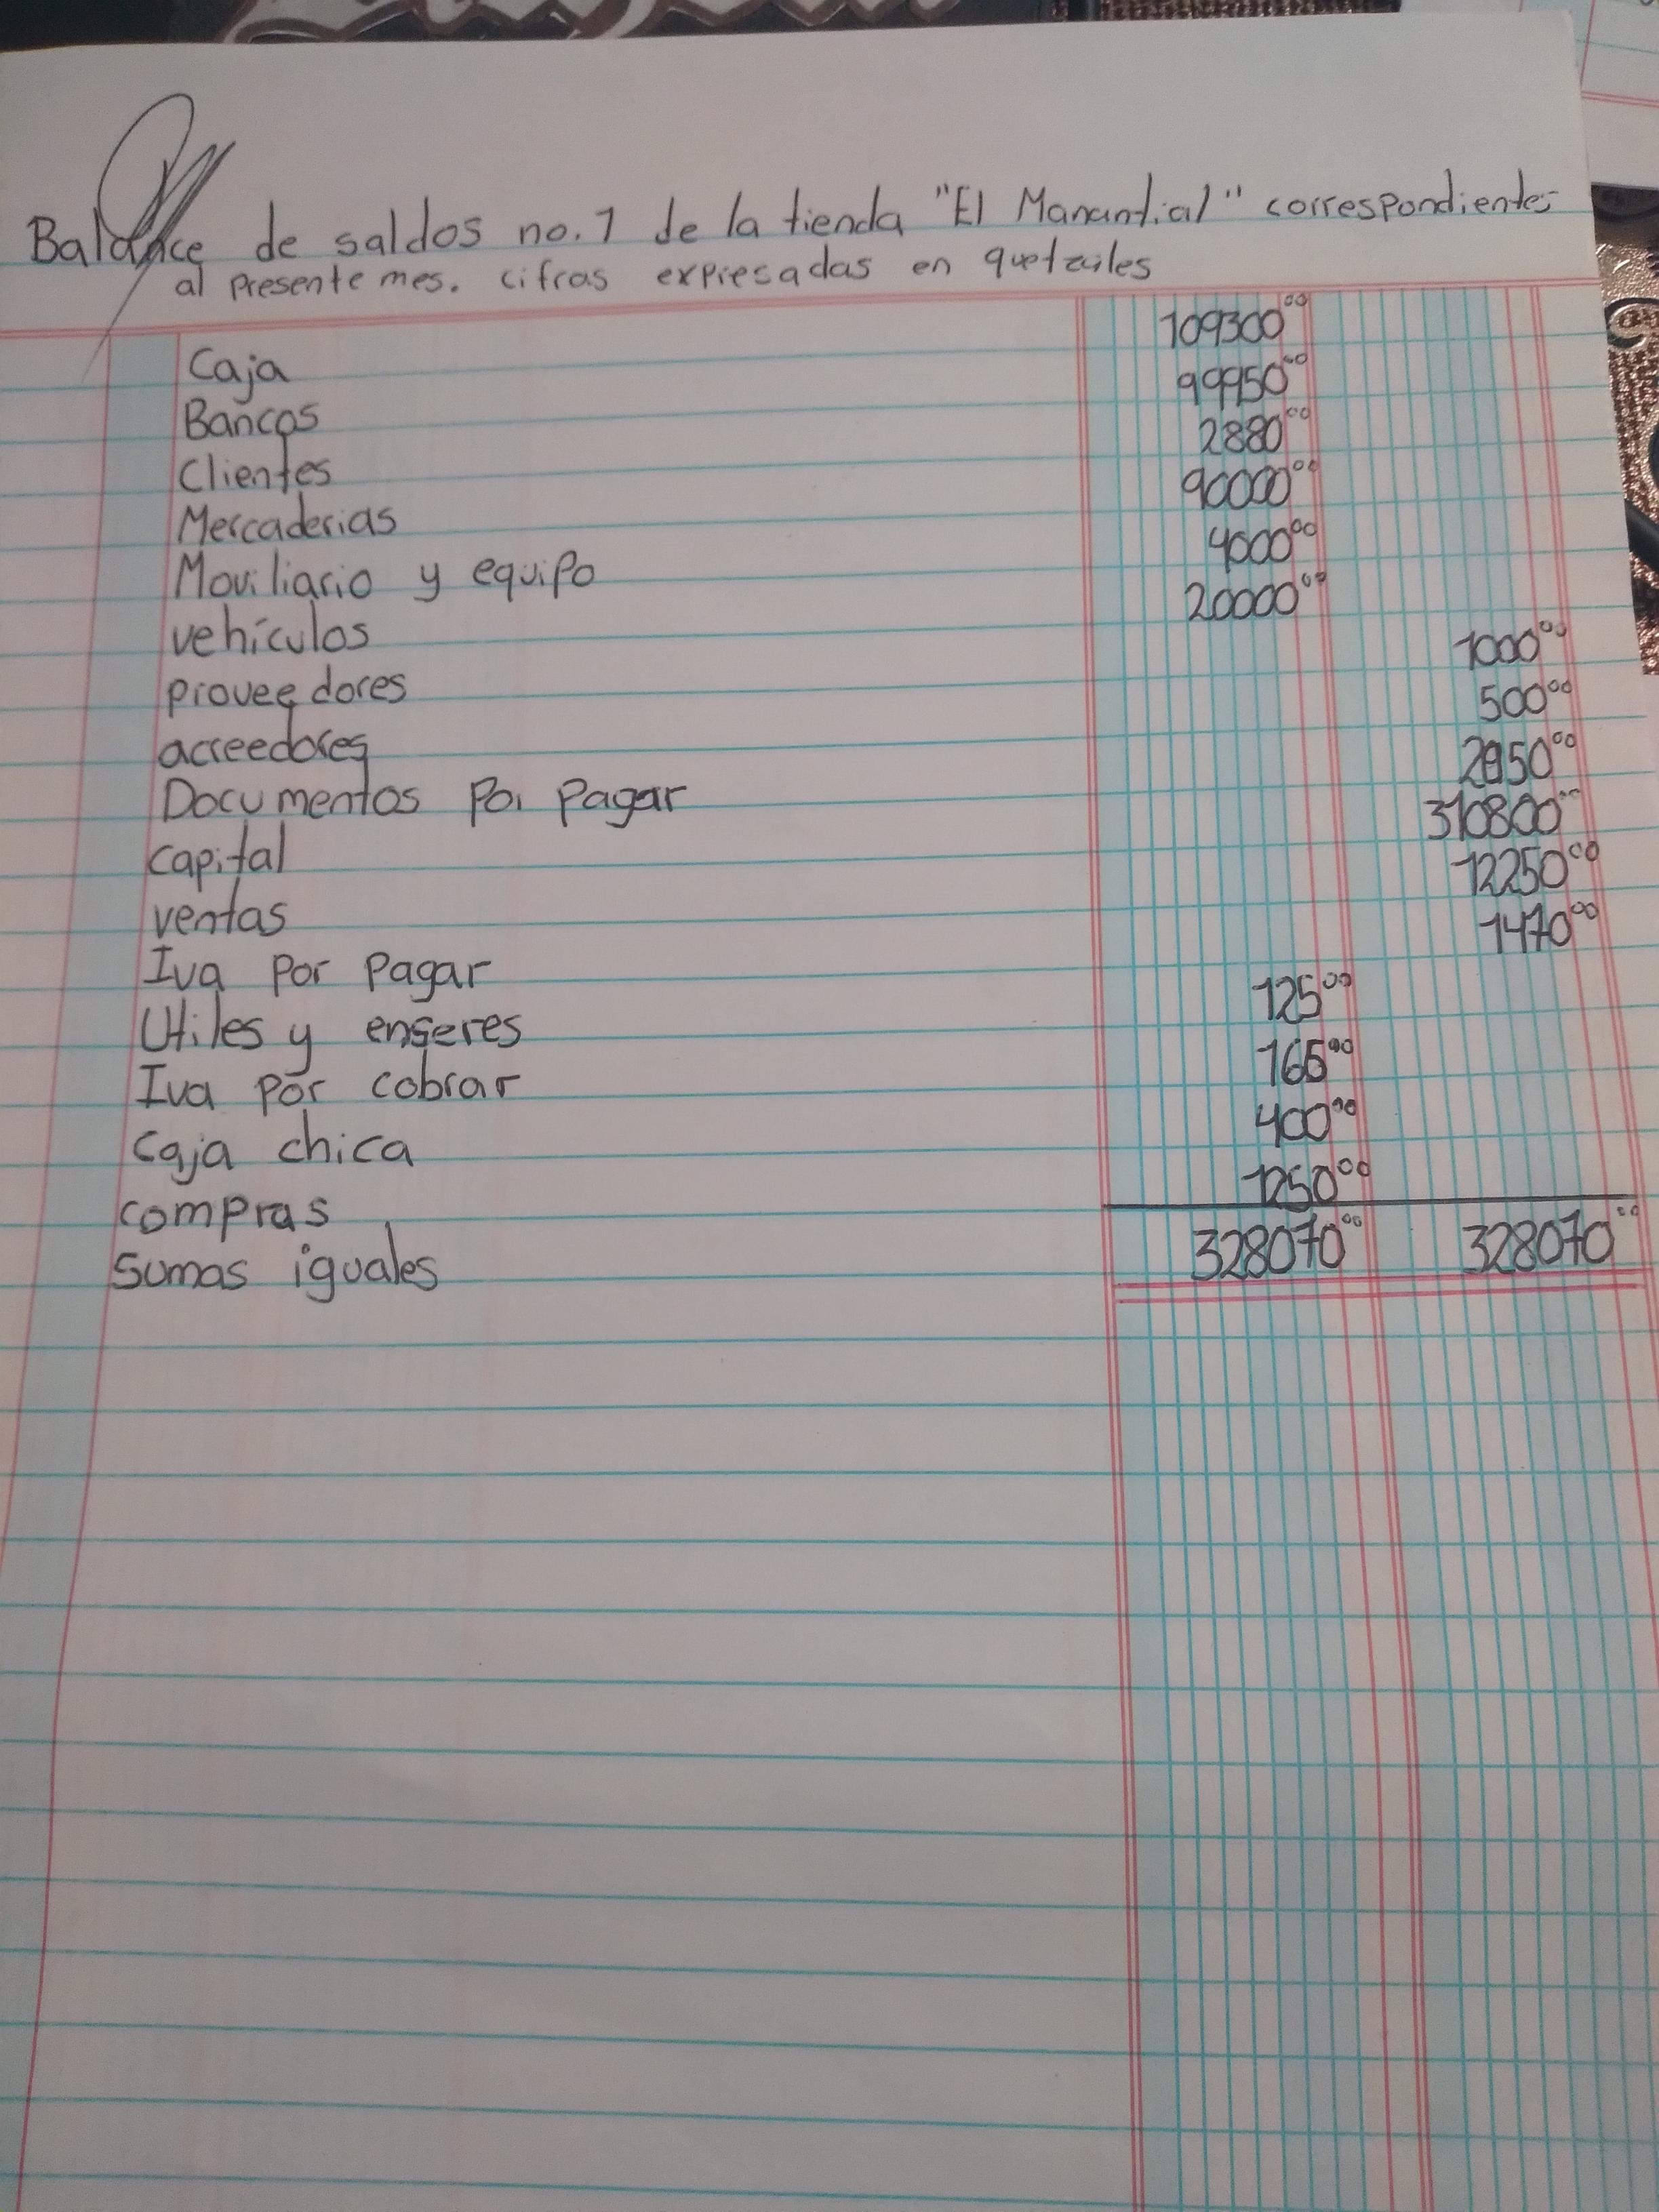 Balance de saldos no. 1 de la tienda "El Manantial" correspondientes
al presente mes. cifras expresadas en quetzales
Caja 109300.00
Bancos 99950.00
Clientes 2880.00
Mercaderias 90000.00
Moviliario y equipo 4000.00
vehículos 20000.00
proveedores 1000.00
acreedores 500.00
Documentos Por Pagar 2050.00
capital 310800.00
ventas 12250.00
Iva por Pagar 1470.00
Utiles y enseres 125.00
Iva por cobrar 165.00
Caja chica 400.00
compras 1250.00
Sumas iguales 328070.00 328070.00